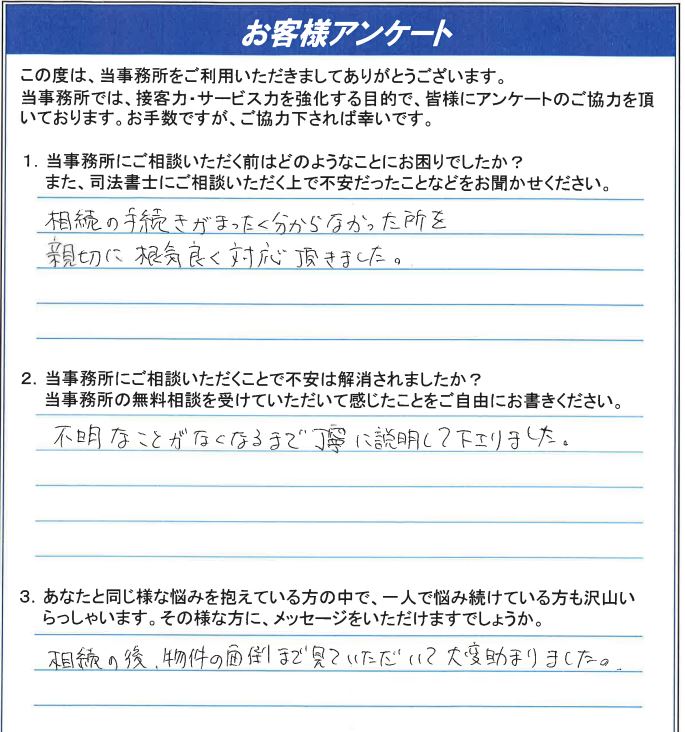 お客様アンケート
この度は、当事務所をご利用いただきましてありがとうございます。
当事務所では、接客力・サービス力を強化する目的で、皆様にアンケートのご協力を頂
いております。お手数ですが、ご協力下されば幸いです。
1．当事務所にご相談いただく前はどのようなことにお困りでしたか？
また、司法書士にご相談いただく上で不安だったことなどをお聞かせください。
相続の手続きがまったく分からなかった所を
親切に根気良く対応頂きました。
2．当事務所にご相談いただくことで不安は解消されましたか？
当事務所の無料相談を受けていただいて感じたことをご自由にお書きください。
不明なことがなくなるまで丁寧に説明して下さりました。
3．あなたと同じ様な悩みを抱えている方の中で、一人で悩み続けている方も沢山い
らっしゃいます。その様な方に、メッセージをいただけますでしょうか。
相続の後、物件の面倒まで見ていただいて大変助まりました。